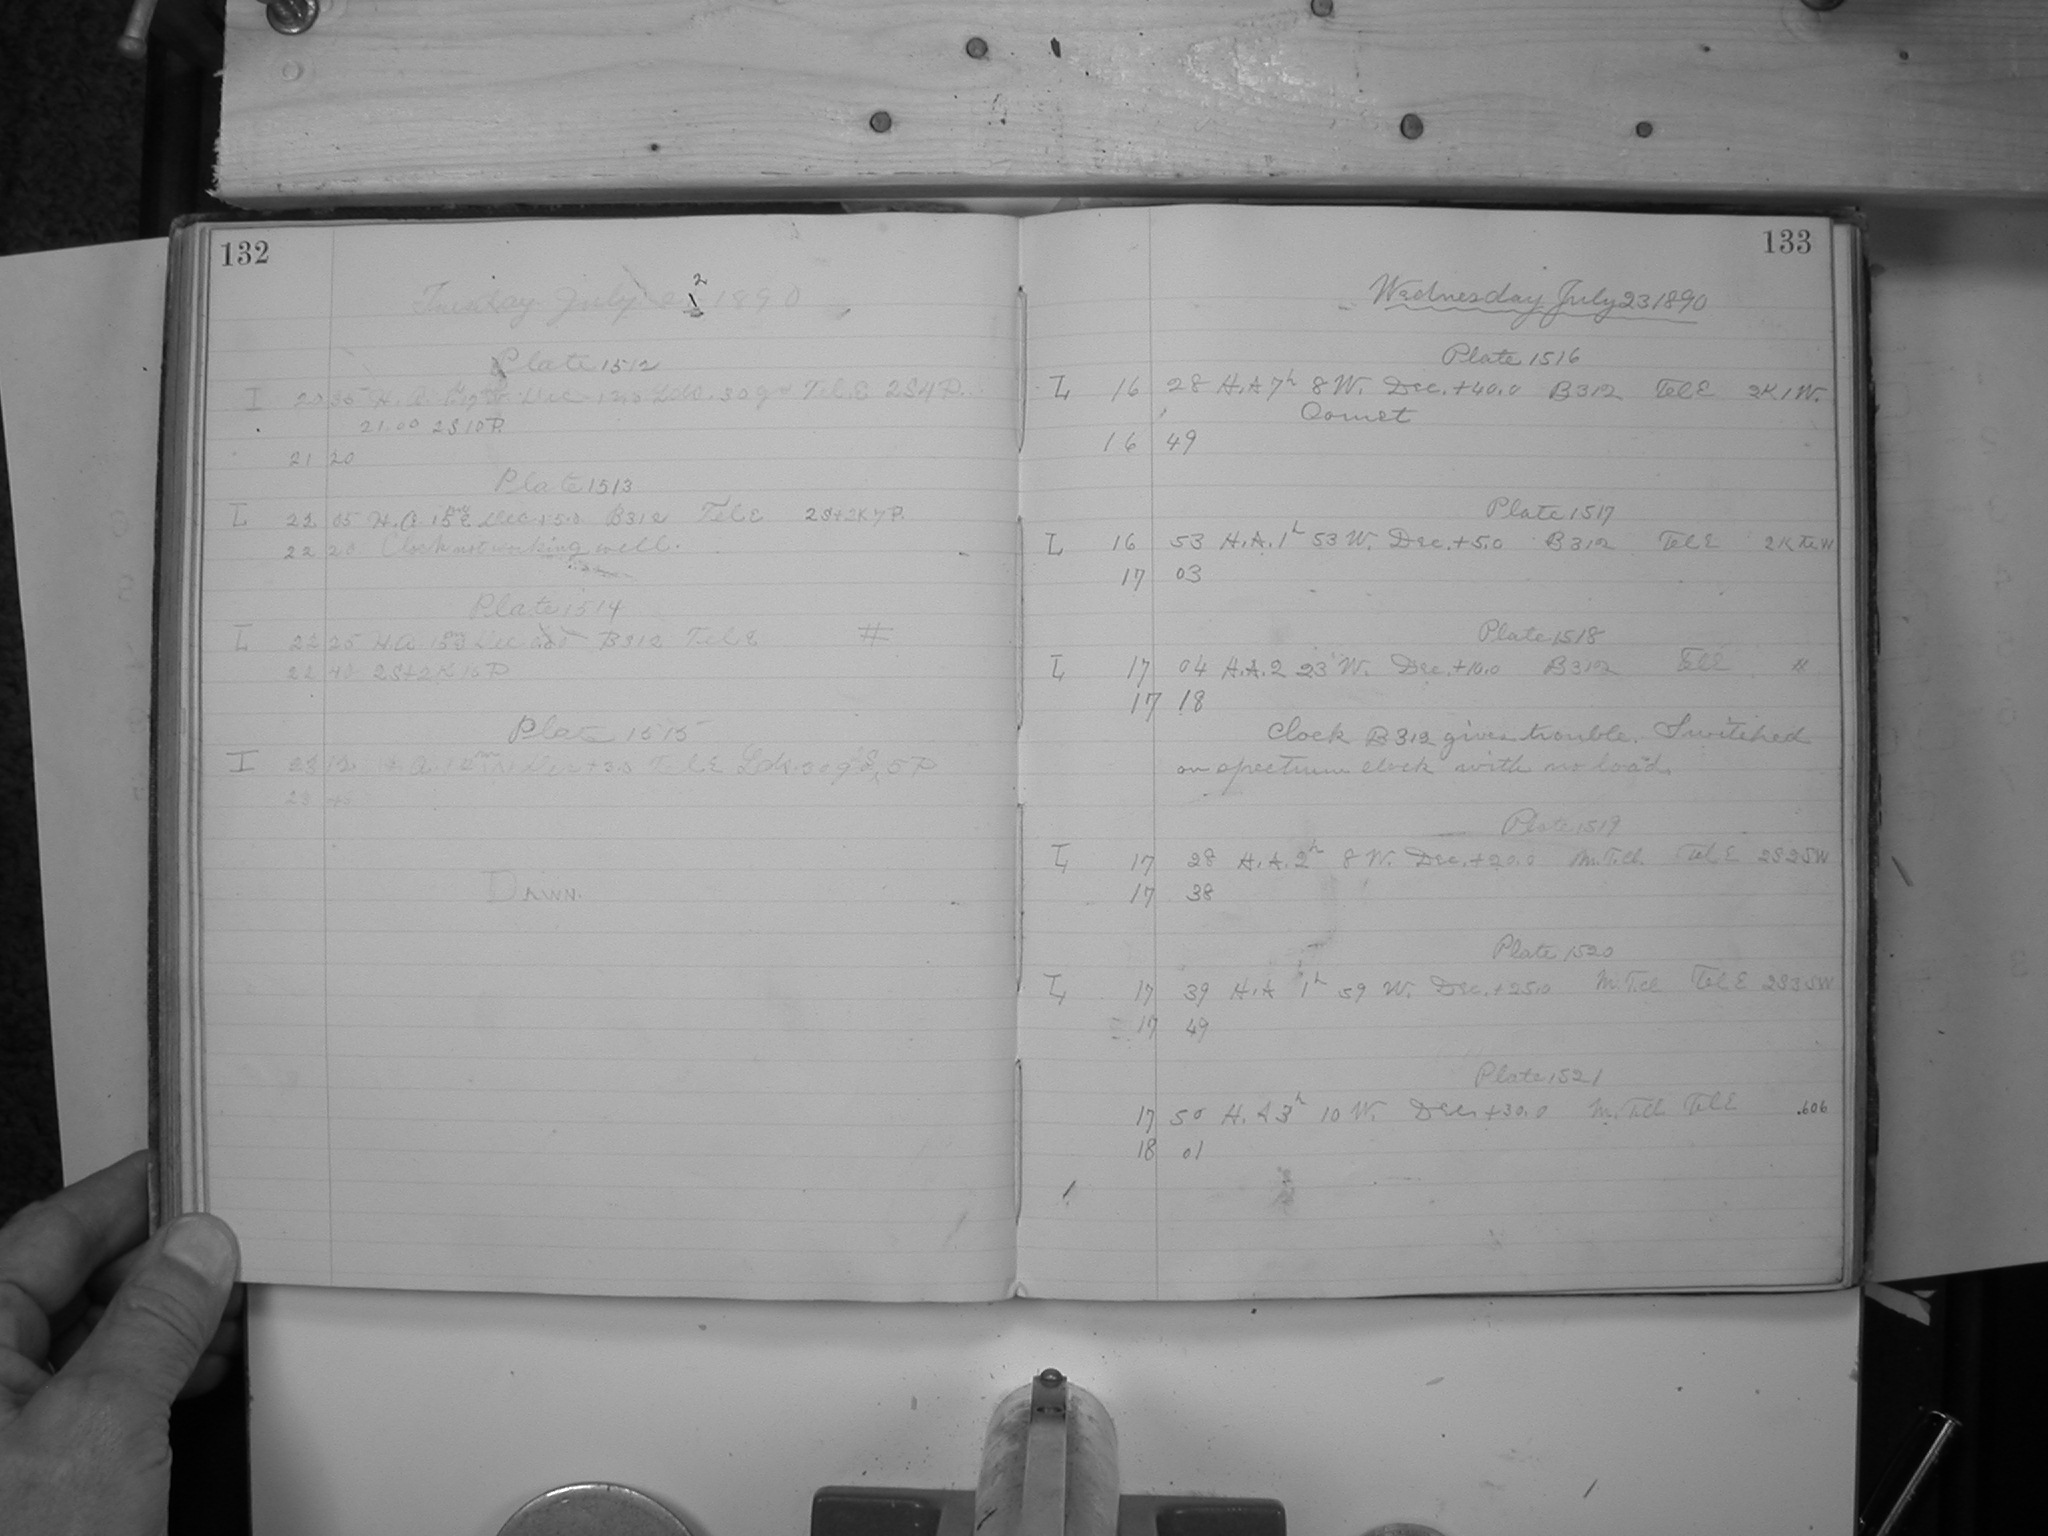 132
Tuesday July 22 1890
Plate 1512
I 20 35 H.A. Dec Tel.E 2S4P.
21.00 2S10P.
21 20
Plate 1513
L 22 05 H.A. Dec +5.0 B312 Tel E 2S+2K7P.
22 20 Clock not working well.
Plate 1514
L 22 25 H.A. Dec B312 Tel E #
22 40 2S+2K10P
Plate 1515
I 23 12 Dec +30 Tel.E 5P
23 45
DAWN.
133
Wednesday July 23 1890
Plate 1516
L 16 28 H.A 7h 8 W. Dec. +40.0 B312 Tel E 2K1W.
Comet
16 49
Plate 1517
L 16 53 H.A. 1h 53 W. Dec. +5.0 B312 Tel E 2K
17 03
Plate 1518
L 17 04 H.A. 2 23 W. Dec. +10.0 B312 Tel E "
17 18
Clock B312 gives trouble. Switched
on spectrum clock with no load.
Plate 1519
L 17 28 H.A. 2h 8 W. Dec. +20.0 M.Tel. Tel E 2S2SW
17 38
Plate 1520
L 17 39 H.A 1h 59 W. Dec. +25.0 M.Tel Tel E 2S3SW
17 49
Plate 1521
17 50 H.A 3h 10 W. Dec. +30.0 M.Tel. Tel E .606
18 01